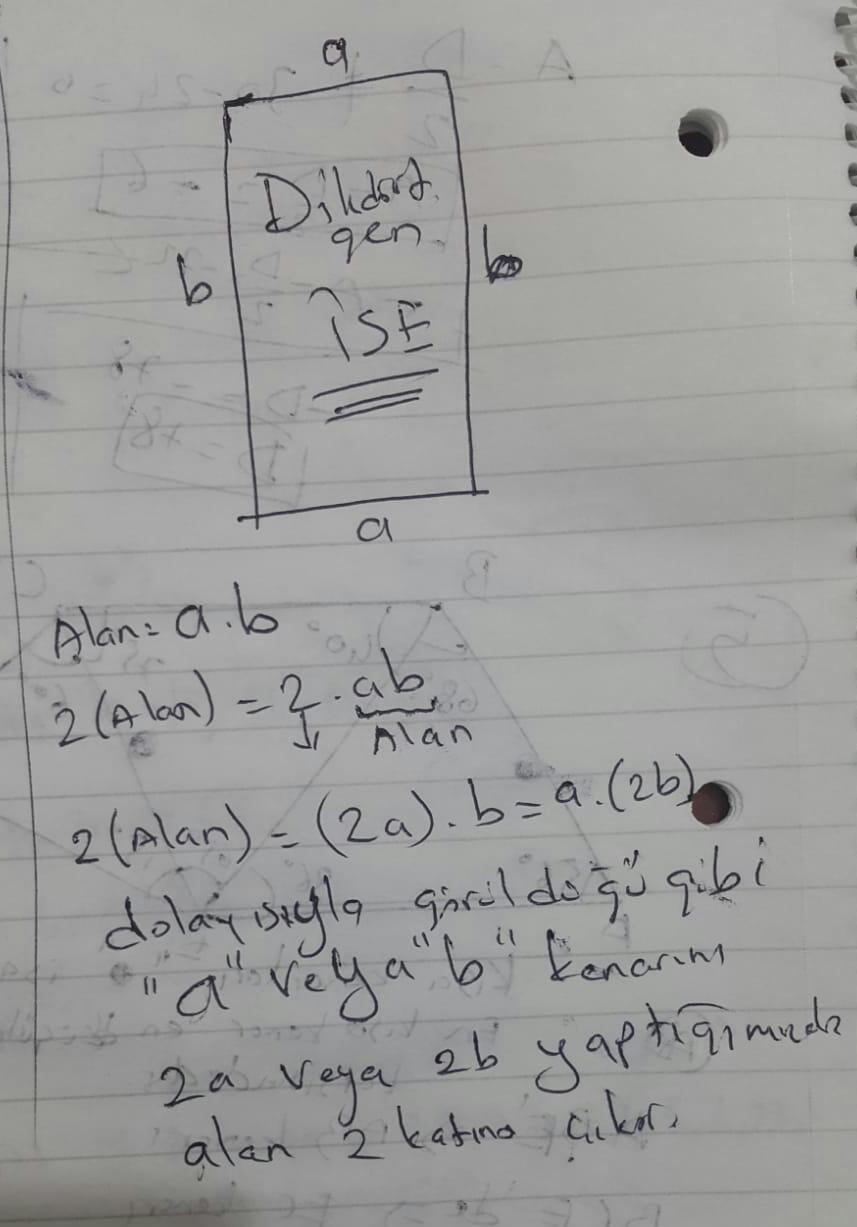 a
Dikdört
gen
b
b
İSE
a
Alan = a.b
2(Alan) = 2 . ab
Alan
2(Alan) = (2a).b = a.(2b)
dolayısıyla görüldüğü gibi
"a" veya "b" kenarını
2a veya 2b yaptığımızda
alan 2 katına çıkar.